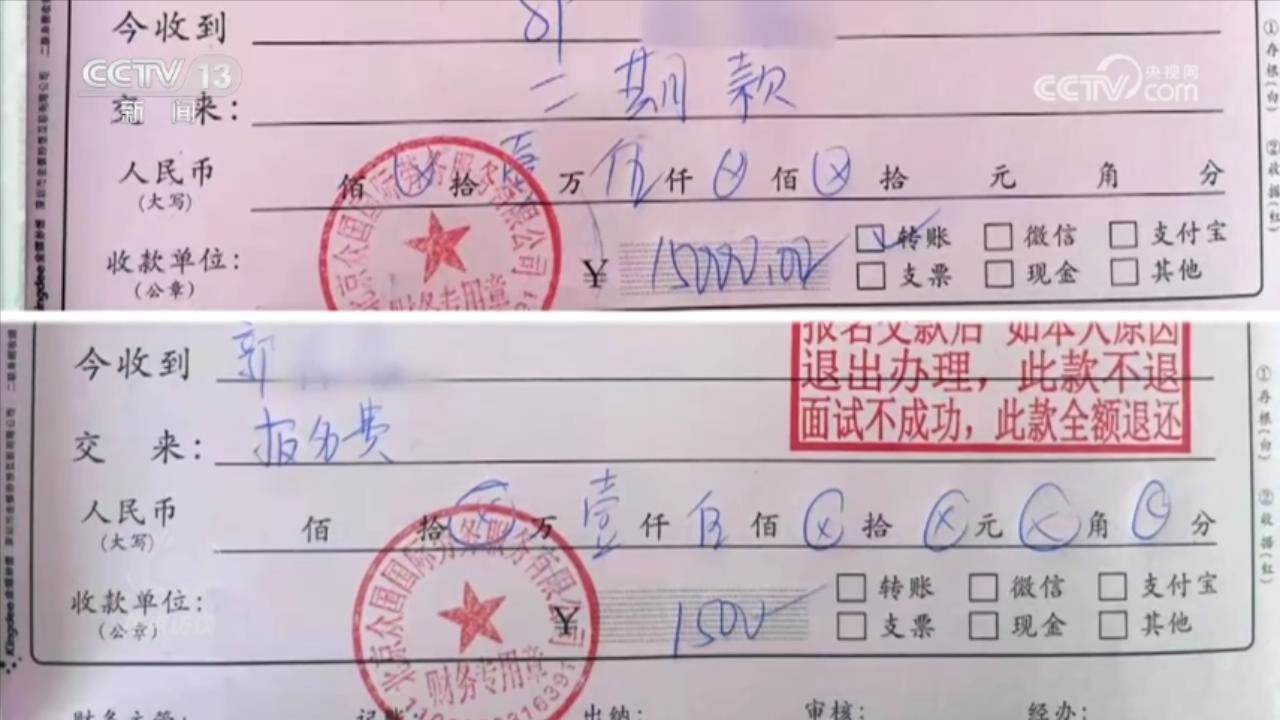 今收到 郭
CCTV 13
新闻
央视网
CCTV.com
交 来: 二期款
人民币
(大写)
佰 ⊗ 拾 壹 万 伍 仟 ⊗ 佰 ⊗ 拾 元 角 分
收款单位:
(公章)
¥ 15000.00
☑ 转账 □ 微信 □ 支付宝
□ 支票 □ 现金 □ 其他
北京众国国际劳务服务有限公司
财务专用章
①存根(白)
②收据(红)
今收到 郭
报名交款后 如本人原因
退出办理,此款不退
面试不成功,此款全额退还
交 来: 报名费
人民币
(大写)
佰 拾 ⊗ 万 壹 仟 伍 佰 ⊗ 拾 ⊗ 元 ⊗ 角 ⊗ 分
收款单位:
(公章)
¥ 1500
□ 转账 □ 微信 □ 支付宝
□ 支票 □ 现金 □ 其他
北京众国国际劳务服务有限公司
财务专用章
①存根(白)
②收据(红)
Kingdee
财务主管: 记账: 出纳: 审核: 经办: